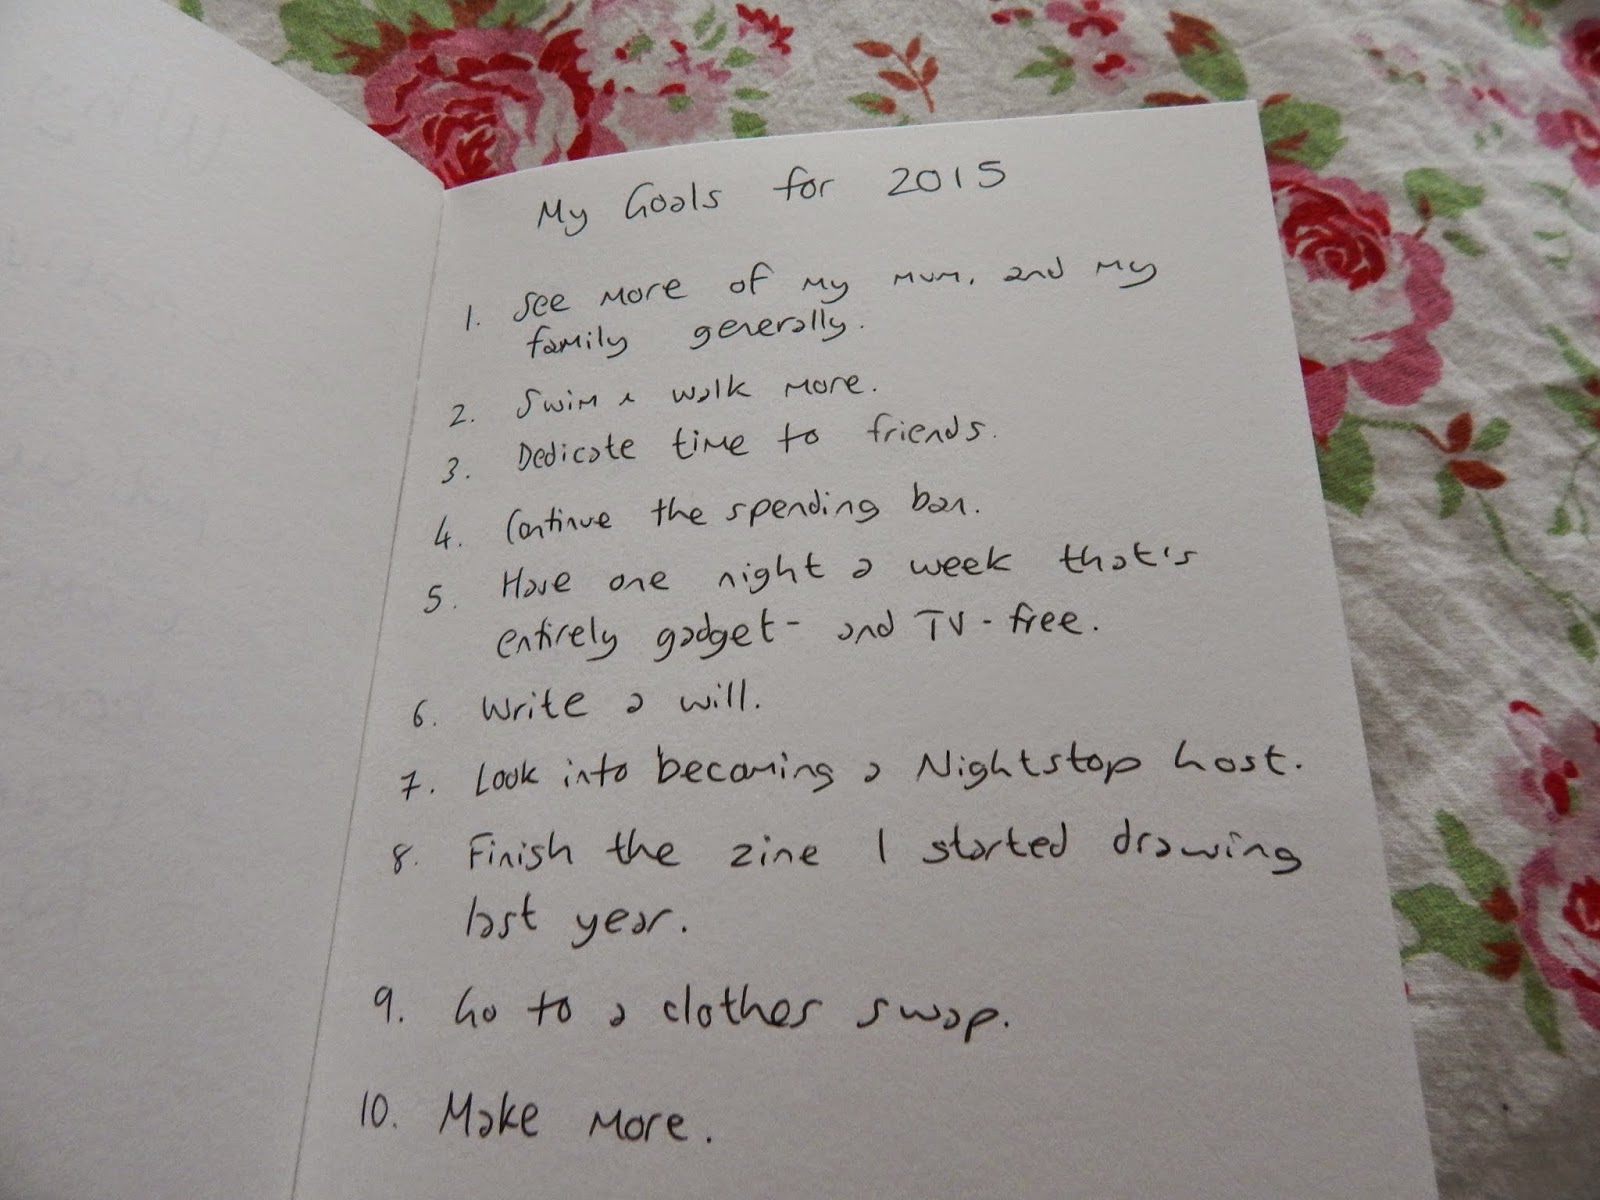 My Goals for 2015
1. See more of my mum, and my
family generally.
2. Swim & walk more.
3. Dedicate time to friends.
4. Continue the spending ban.
5. Have one night a week that's
entirely gadget- and TV-free.
6. Write a will.
7. Look into becoming a Nightstop host.
8. Finish the zine I started drawing
last year.
9. Go to a clothes swap.
10. Make more.